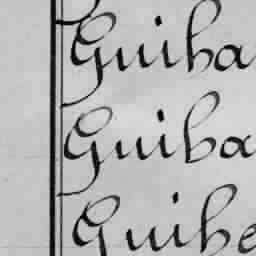 Guiba
Guiba
Guibe